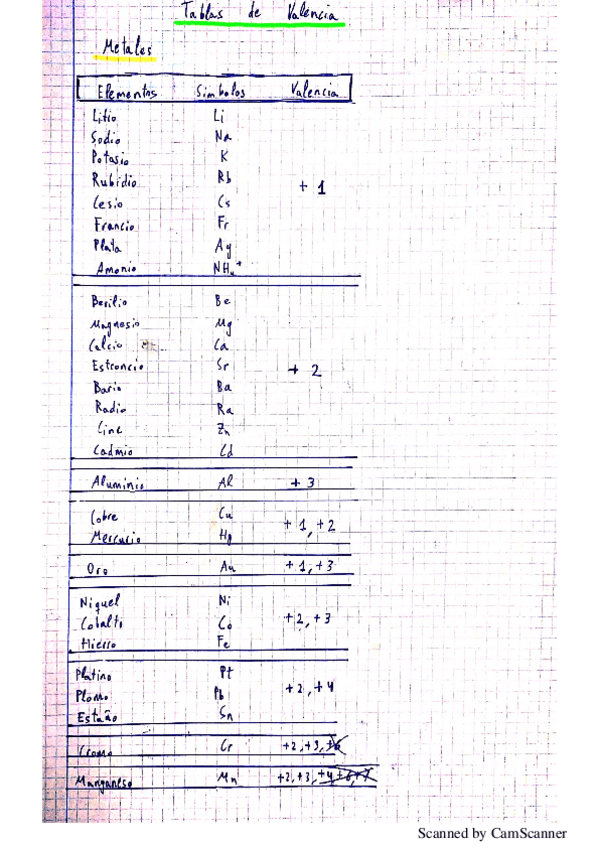 Tablas de Valencia
Metales
Elementos Simbolos Valencia
Litio Li
Sodio Na
Potasio K
Rubidio Rb
+1
Cesio Cs
Francio Fr
Plata Ag
Amonio NH₄⁺
Berilio Be
Magnesio Mg
Calcio Ca
Estroncio Sr
+2
Bario Ba
Radio Ra
Cinc Zn
Cadmio Cd
Aluminio Al +3
Cobre Cu
+1, +2
Mercurio Hg
Oro Au +1, +3
Niquel Ni
Cobalto Co +2, +3
Hierro Fe
Platino Pt
Plomo Pb +2, +4
Estaño Sn
Cromo Cr +2, +3, +6
Manganeso Mn +2, +3, +4, +6, +7
Scanned by CamScanner